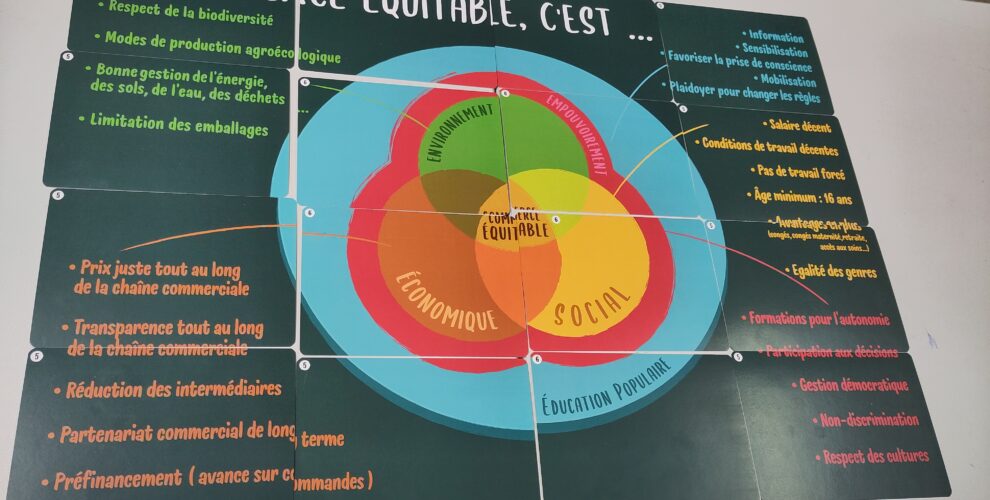 ÉQUITABLE, C'EST ...
• Respect de la biodiversité
• Modes de production agroécologique
• Bonne gestion de l'énergie,
des sols, de l'eau, des déchets ...
• Limitation des emballages
• Prix juste tout au long
de la chaîne commerciale
• Transparence tout au long
de la chaîne commerciale
• Réduction des intermédiaires
• Partenariat commercial de long terme
• Préfinancement ( avance sur commandes )
ENVIRONNEMENT
EMPOUVOIREMENT
COMMERCE
ÉQUITABLE
ÉCONOMIQUE
SOCIAL
ÉDUCATION POPULAIRE
• Information
• Sensibilisation
• Favoriser la prise de conscience
• Mobilisation
• Plaidoyer pour changer les règles
• Salaire décent
• Conditions de travail décentes
• Pas de travail forcé
• Âge minimum : 16 ans
(congés, congés maternité, retraite,
accès aux soins...)
• Egalité des genres
• Formations pour l'autonomie
• Participation aux décisions
• Gestion démocratique
• Non-discrimination
• Respect des cultures